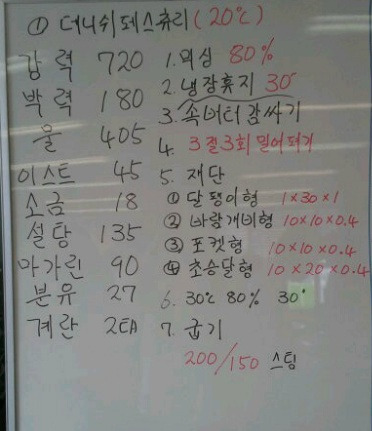 ① 더니쉬 페스츄리 (20℃)
강력 720
박력 180
물 405
이스트 45
소금 18
설탕 135
마가린 90
분유 27
계란 2EA
1. 믹싱 80%
2. 냉장휴지 30'
3. 속버터 감싸기
4. 3절 3회 밀어펴기
5. 재단
① 달팽이형 1×30×1
② 바람개비형 10×10×0.4
③ 포켓형 10×10×0.4
④ 초승달형 10×20×0.4
6. 30℃ 80% 30'
7. 굽기
200/150 스팀